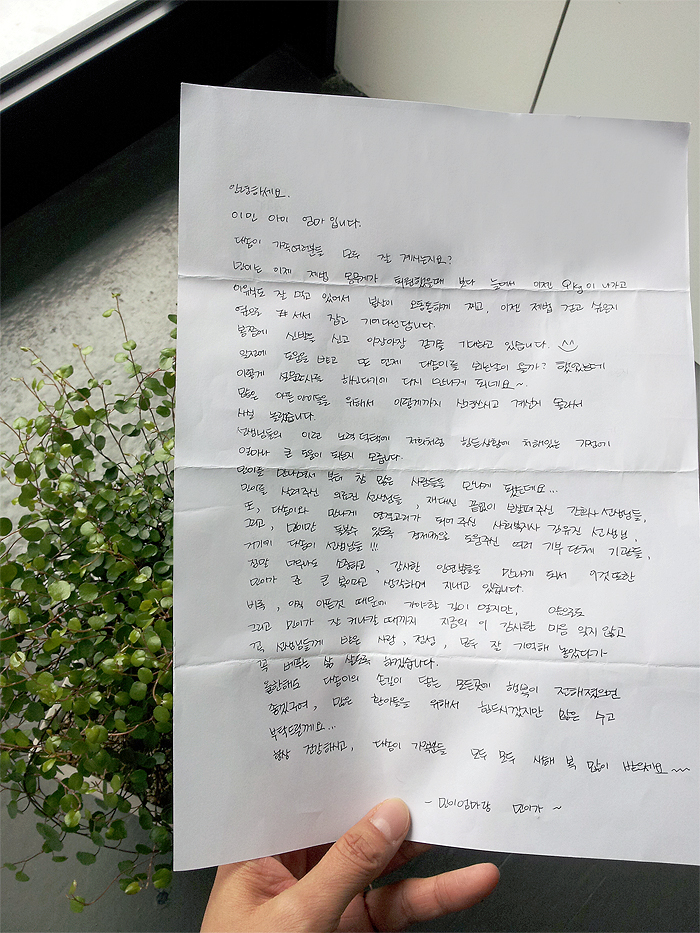 안녕하세요.
이민 아이 엄마입니다.
대동이 가족여러분들 모두 잘 계시는지요?
민이는 이제 제법 몸무게가 퇴원했을때 보다 늘어서 이젠 9kg이 나가고
잘 먹고 있어서 밥살이 오동통하게 찌고, 이젠 제법 걷고 싶은지
옆으로 서서 잡고 기어다닌답니다.
봄쯤에 신발을 신고 아장아장 걷기를 기대하고 있습니다. ^^
도움을 받고 또 언제 대동이를 뵙는날이 올까? 했었는데
이렇게 설문조사를 해 다시 만나게 되네요~.
많은 아픈 아이들을 위해서 이렇게까지 신경쓰시고 계신지 몰라서
사실 놀랬습니다.
선생님들의 이런 노력 덕택에 저희처럼 힘든상황에 처해있는 가정에
얼마나 큰 도움이 되는지 모릅니다.
민이를 만나면서 부터 참 많은 사람들을 만나게 됐는데요...
민이를 살려주신 의료진 선생님들, 끝없이 보살펴주신 간호사 선생님들,
또, 대동이와 만나게 연결고리가 되어 주신 사회복지사 강유진 선생님,
그리고, 민이가 수 있도록 경제적으로 도움주신 여러 기부 단체 기관들,
거기에 대동이 선생님들 !!!
정말 너무나도 소중하고, 감사한 인연분들을 만나게 되서 이것 또한
민이가 준 큰 복이라고 생각하며 지내고 있습니다.
비록, 아직 아픈것 때문에 가야할 길이 멀지만, 앞으로도
그리고 민이가 잘 커나갈 때까지 지금의 이 감사한 마음 잊지 않고
꼭 선생님들께 받은 사랑, 정성, 모두 잘 기억해 놓았다가
꼭 베푸는 삶 살도록 하겠습니다.
올한해도 대동이의 손길이 닿는 모든곳에 행복이 전해졌으면
좋겠구여, 많은 환아들을 위해서 힘드시겠지만 많은 수고
부탁드릴께요...
항상 건강하시고, 대동이 가족분들 모두 모두 새해 복 많이 받으세요~~
- 민이엄마랑 민이가 ~